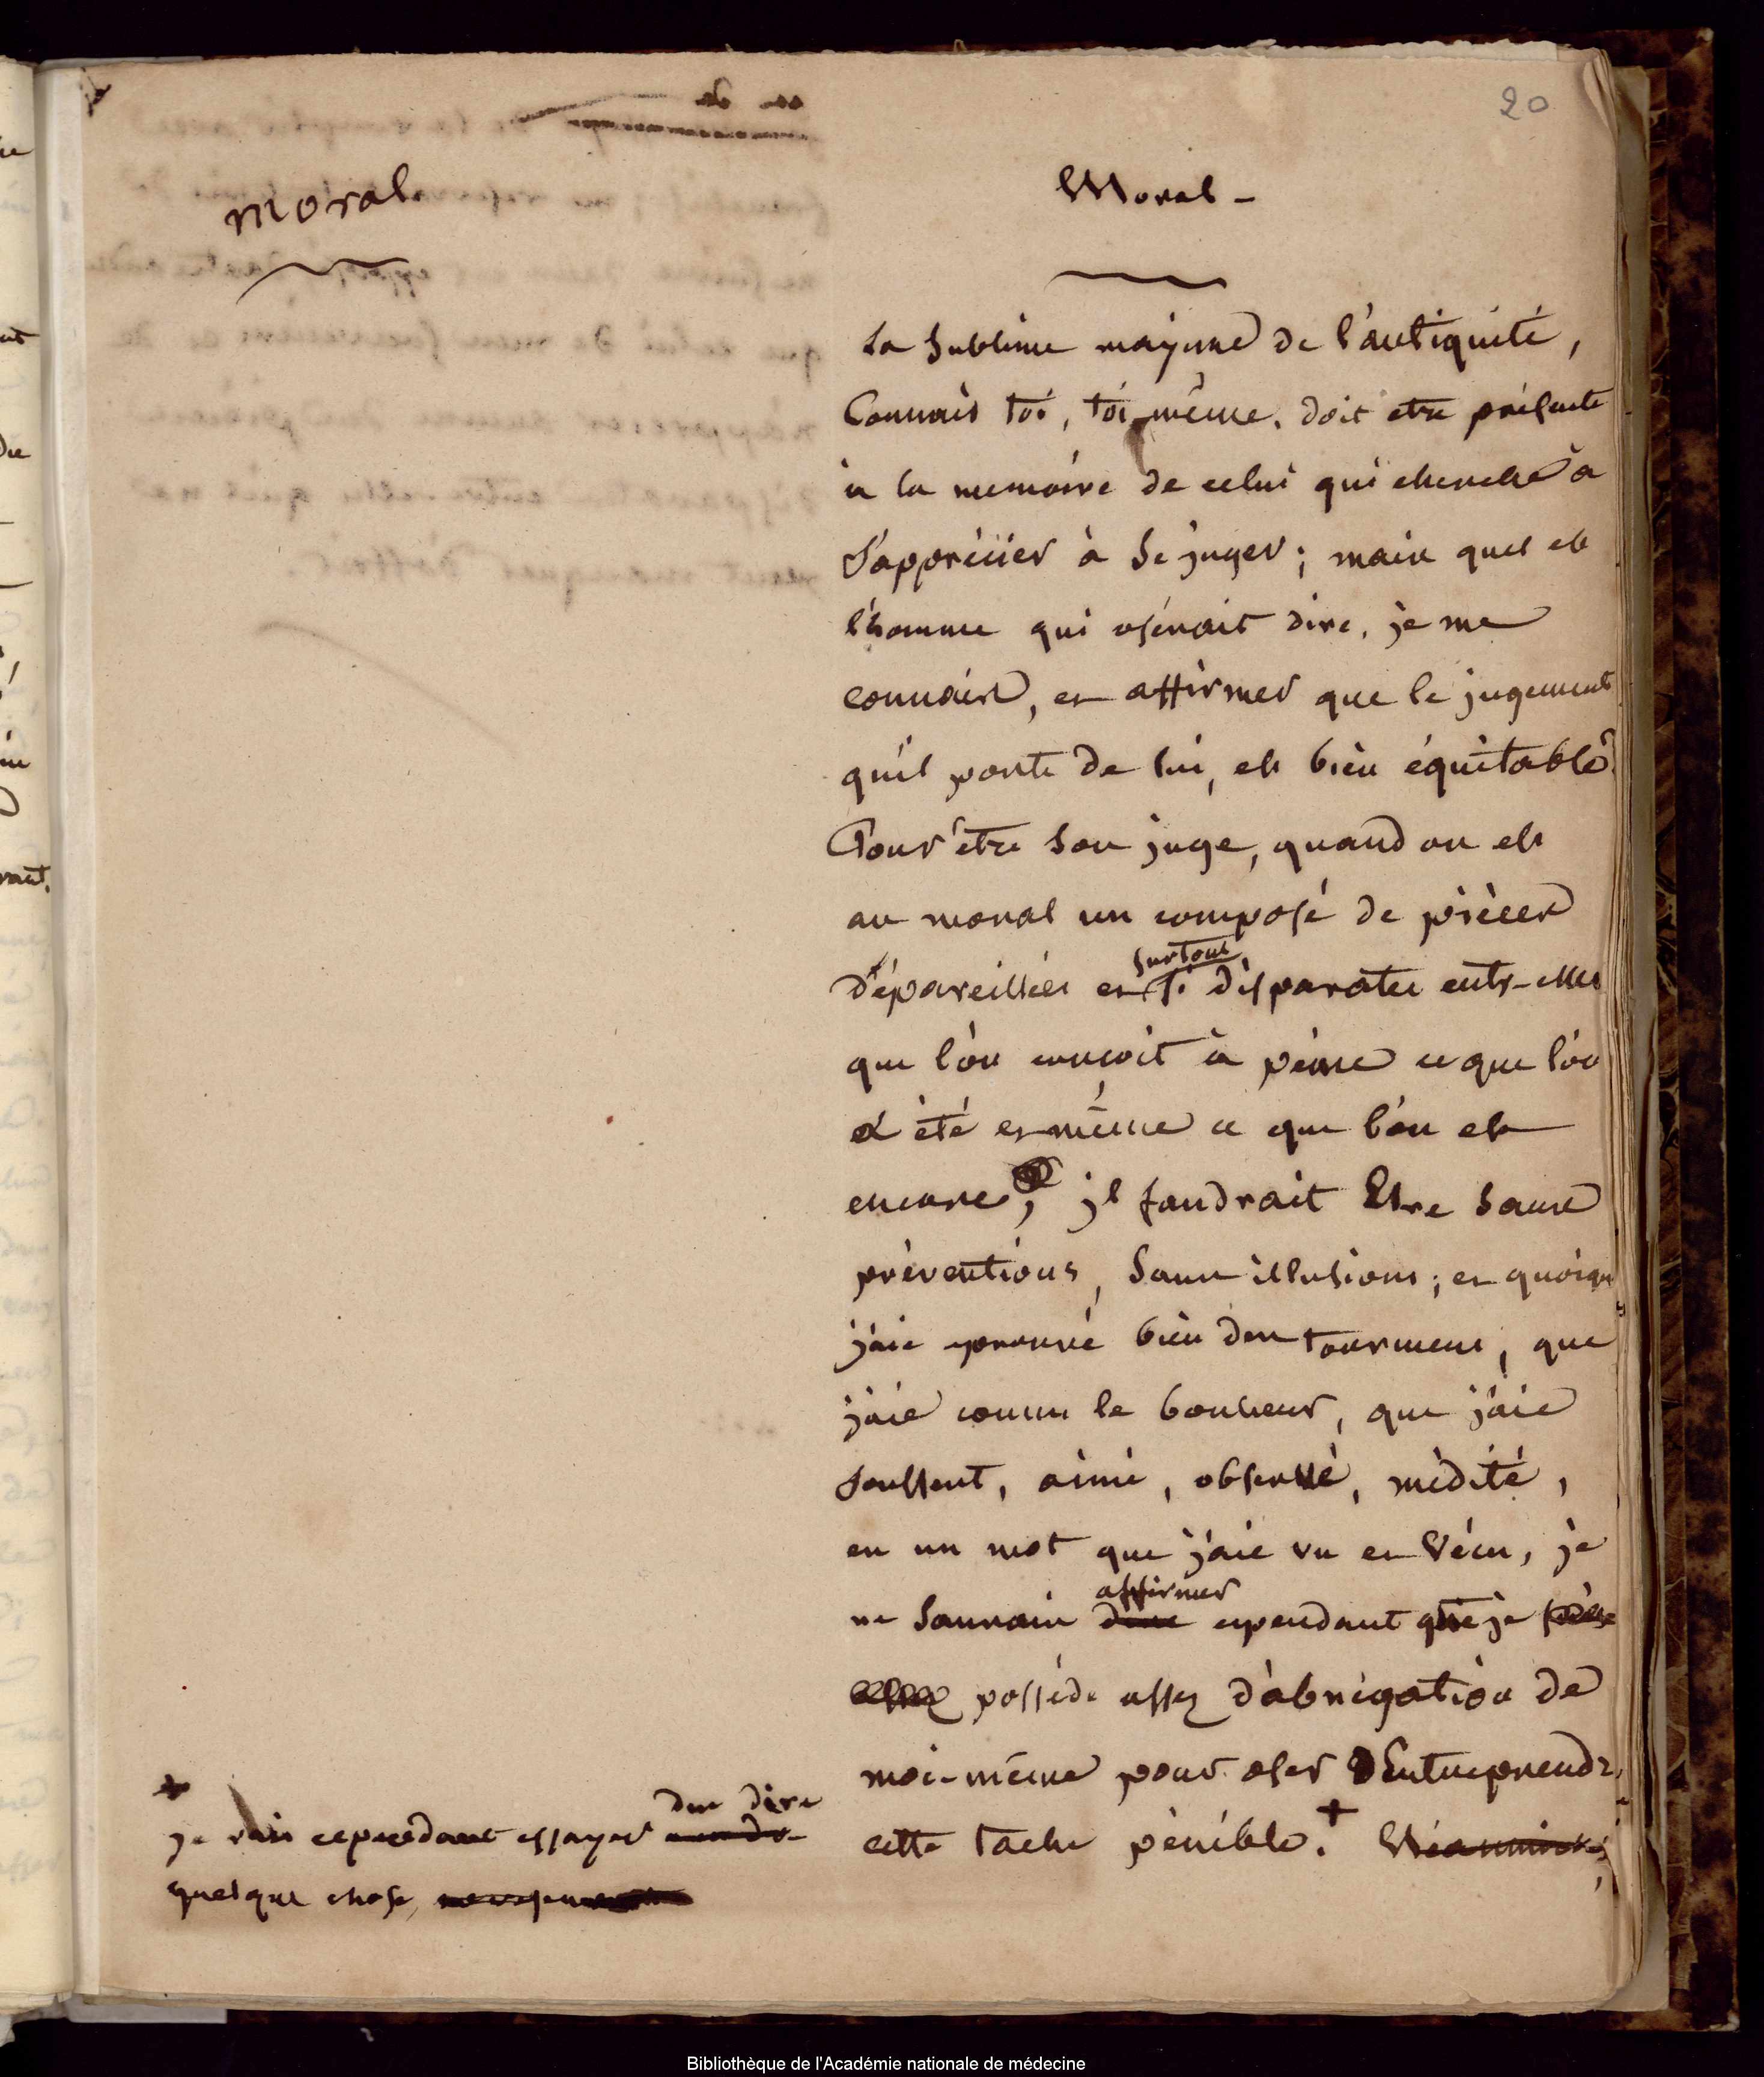 20
moral
Moral -
La Sublime maxime de l'antiquité,
Connais toi, toi-même. doit etre présente
à la memoire de celui qui cherche à
S'apprécier à Se juger; mais quel est
l'homme qui oserait dire, je me
connais, et affirmer que le jugement
qu'il porte de lui, est bien équitable.
Pour être Son juge, quand on est
au moral un composé de pièces
dépareillées et surtout si disparates entr-elles
que l'on conçoit à peine ce que l'on
a été et même ce que l'on est
encore, il faudrait Etre Sans
préventions, Sans illusions; et quoique
j'aie eprouvé bien des tourmens, que
j'aie connu le bonheur, que j'aie
Souffert, aimé, observé, médité,
en un mot que j'aie vu et vécu, je
affirmer
ne Saurais dire cependant que je
assez possède assez d'abnégation de
moi-même pour oser Entreprendre
cette tache pénible. + Néanmoins
+
due dire
je vais cependant essayer
quelque chose,
Bibliothèque de l'Académie nationale de médecine